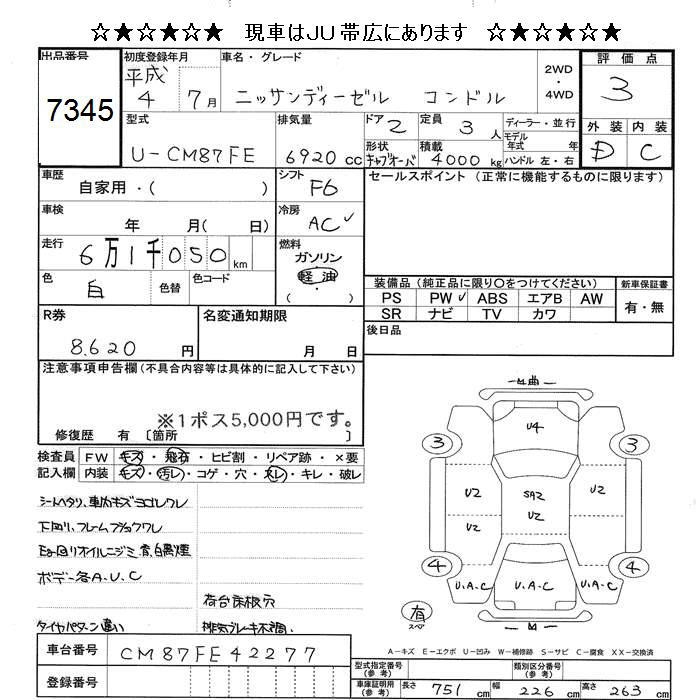 ☆★☆★☆★ 現車はJU帯広にあります ☆★☆★☆★
出品番号
7345
初度登録年月
平成
4 7月
車名・グレード
ニッサンディーゼル コンドル
2WD
・
4WD
評価点
3
型式
U-CM87FE
排気量
6920cc
ドア 2
定員 3人
形状
キャブオーバ
積載
4000kg
ディーラー・並行
モデル
年式 年
ハンドル 左・右
外装 内装
D C
車歴
自家用・( )
シフト
F6
セールスポイント(正常に機能するものに限ります)
車検
年 月( 日)
冷房
AC✓
走行
6万1千050km
燃料
ガソリン
軽油
( )
色
白
色替
色コード
装備品(純正品に限り○をつけてください)
PS PW✓ ABS エアB AW
SR ナビ TV カワ
新車保証書
有・無
R券
8.620 円
名変通知期限
月 日
後日品
注意事項申告欄(不具合内容等は具体的に記入して下さい)
※1ポス5,000円です。
修復歴 有 〔箇所 〕
検査員
記入欄
FW キズ・飛石・ヒビ割・リペア跡・×要
内装 キズ・汚レ・コゲ・穴・スレ・キレ・破レ
シートヘタリ、車内キズヨゴレワレ
下回リ、フレームサビ
オイルニジミ
ボデー各A.U.C
荷台床板穴
タイヤパターン違い
排気ブレーキ不調
U4
3 3
U2 SA2 U2
U2 U2
4 4
U.A.C U.A.C U.A.C
有
スペア
A－キズ E－エクボ U－凹み W－補修跡 S－サビ C－腐食 XX－交換済
車台番号
CM87FE42277
登録番号
型式指定番号
(参考)
類別区分番号
(参考)
車庫証明用
(参考)
長さ 751cm 幅 226cm 高さ 263cm